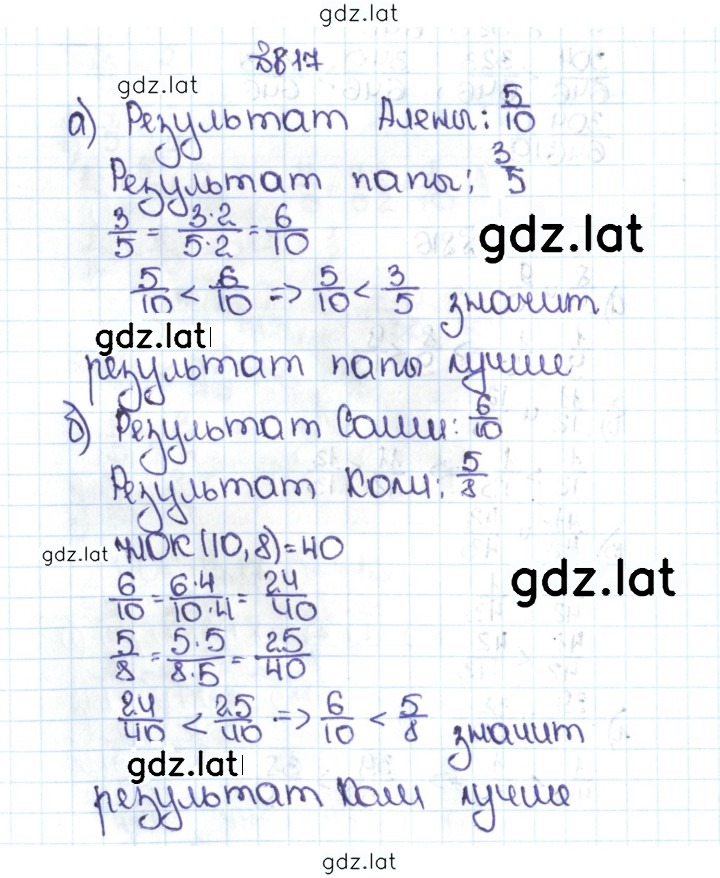 gdz.lat
817
gdz.lat
а) Результат Алены: 5/10
Результат папы: 3/5
3/5 = 3·2/5·2 = 6/10
gdz.lat
5/10 < 6/10 => 5/10 < 3/5 значит
gdz.lat
результат папы лучше
б) Результат Саши: 6/10
Результат Коли: 5/8
gdz.lat НОК(10,8)=40
6/10 = 6·4/10·4 = 24/40
gdz.lat
5/8 = 5·5/8·5 = 25/40
24/40 < 25/40 => 6/10 < 5/8 значит
gdz.lat
результат Коли лучше
gdz.lat